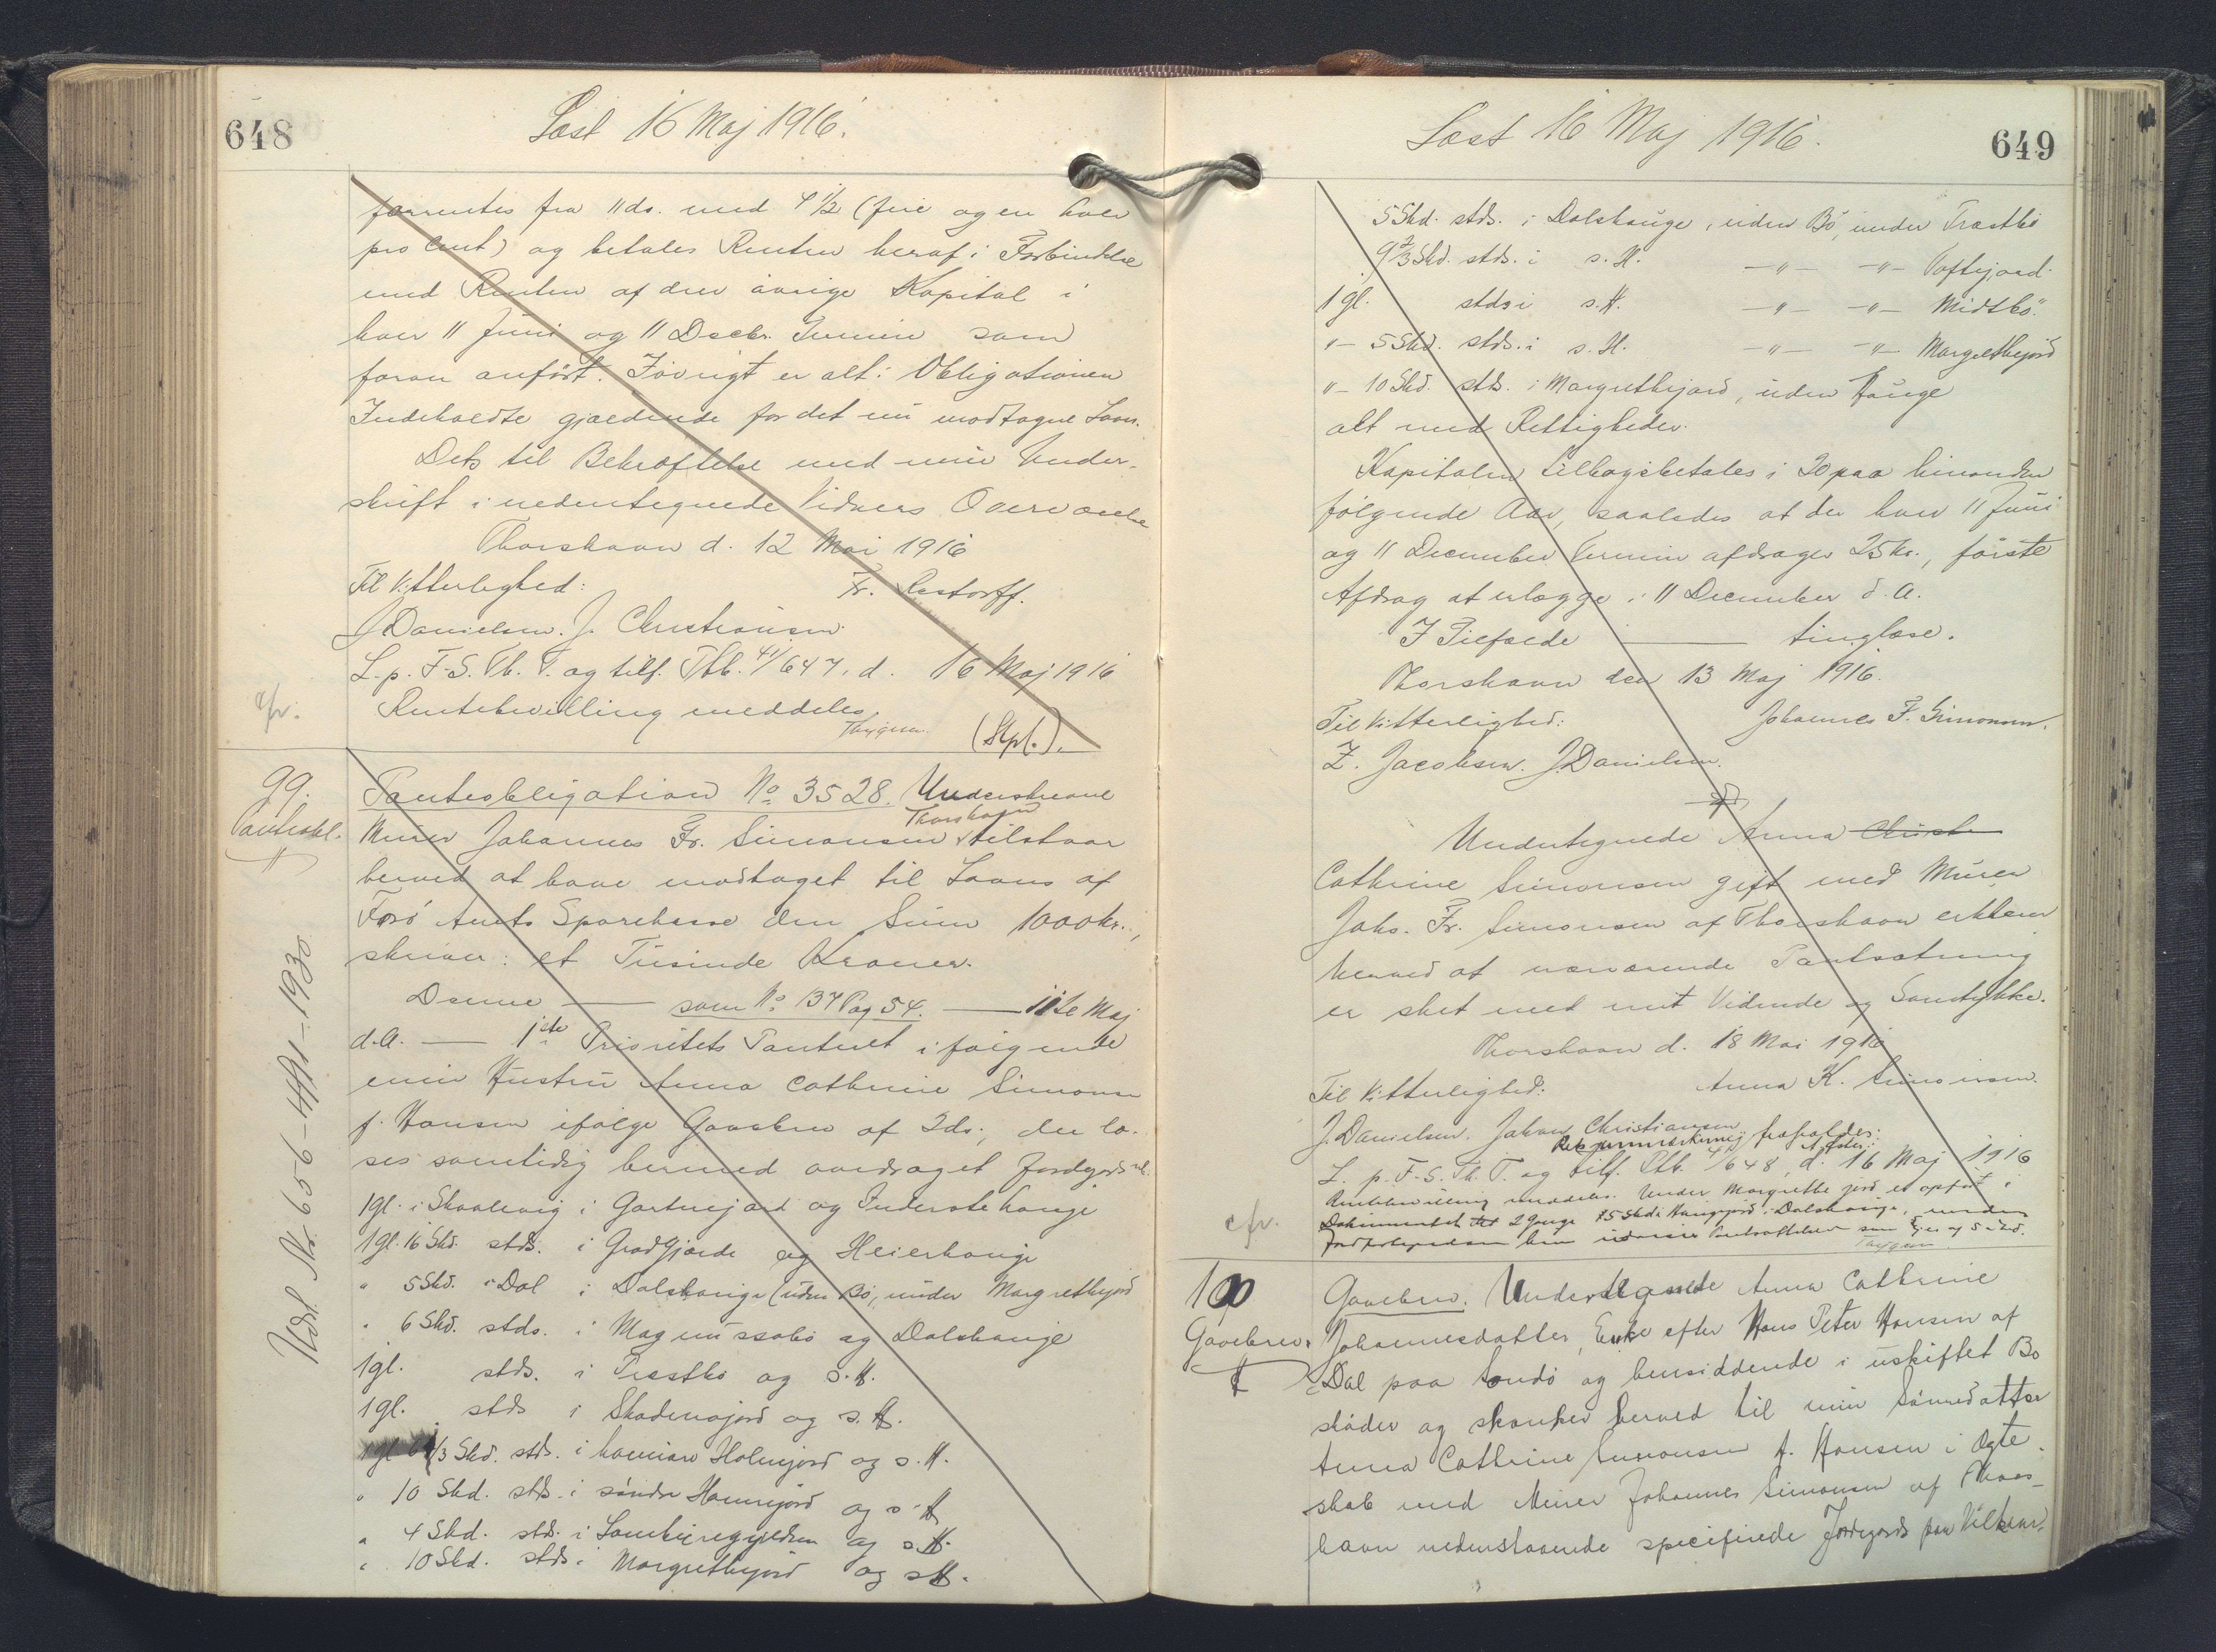 648
Læst 16 Maj 1916.
forrentes fra 11 ds. med 4 1/2 (fire og en halv
pro Cent) og betales Renten heraf i Forbindelse
med Renten af den øvrige Kapital i
hver 11 Juni og 11 Decbr. Termin som
foran anført. Iøvrigt er alt i Obligationen
Indeholdte gjældende for det nu modtagne Laan.
Dets til Bekræftelse med min Under-
skrift i nedentegnede Vidners Overværelse
Thorshavn d. 12 Mai 1916
Til Vitterlighed: Fr. Restorff.
J Danielsen. J. Christiansen.
L. p. F-S. Th. T. og tilf. Ptb. 41/647. d. 16 Maj 1916
cfr. Rentebevilling meddeles.
Thygesen. (Stpl.).
99. Panteobligation No 3528. Undertegnede
Panteobl. Murer Johannes Fr. Simonsen Thorshavn tilstaar
herved at have modtaget til Laans af
Færø Amts Sparekasse den Sum 1000 kr.,
skriver: et Tusinde Kroner.
Denne — som No 137 Pag 54. — 11te Maj
d.A. — 1ste Prioritets Panteret i følgende
min Hustru Anna Cathrine Simonsen
f. Hansen ifølge Gavebrev af 2ds., der læ-
ses samtidig hermed overdraget Jordegods
1gl. i Skaalevig i Gartnejord og Inderstehauge
1gl. 16 Skd. stds. i Gradgjærde og Heierhauge
" 5 Skd. i Dal i Dalshauge (uden Bø, under Margrethejord
" 6 Skd. stds. i Magnussabø og Dalshauge
1gl. stds. i Træstbø og s. H.
1gl. stds i Skadenajord og s. H.
1gl 6 1/3 Skd. stds. i Holmjord og s. H.
" 10 Skd. stds. i søndre Hamrejord og s. H
" 4 Skd. stds. i og s. H.
" 10 Skd. stds. i Margrethejord og s H.
Udsl. Nr. 656 - 4/11 - 1930
Læst 16 Maj 1916.
649
5 Skd. stds. i Dalshauge, uden Bø, under Træstbø
9 2/3 Skd. stds. i s. H. —"— —"— Toftejord.
1 gl. stds i s. H. —"— —"— Midtbø.
"— 5 Skd. stds. i s. H. —"— —"— Margrethejord
"— 10 Skd. stds. i Margrethejord, uden Hauge
alt med Rettigheder.
Kapitalen tilbagebetales i 20 paa hinanden
følgende Aar, saaledes at der hver 11 Juni
og 11 December Termin afdrages 25 kr., første
Afdrag at erlægge i 11 December d. A.
I Tilfælde — tinglæse.
Thorshavn den 13 Maj 1916.
Til Vitterlighed: Johannes F. Simonsen.
Z. Jacobsen. J. Danielsen.
Undertegnede Anna Christ
Cathrine Simonsen gift med Murer
Johs. Fr. Simonsen af Thorshavn erklærer
herved at nærværende Pantsætning
er sket med mit Vidende og Samtykke.
Thorshavn d. 18 Mai 1916
Til Vitterlighed: Anna K. Simonsen.
J. Danielsen. Johan Christiansen
frafaldes:
L. p. F-S. Th. T. og tilf. Ptb. 41/648, d. 16 Maj 1916
Rentebevilling meddeles. Under Margrethe jord er opført i
cfr. Dokumentet 2 Gange 15 Skd. i Dalshauge, medens
Thygesen
100 Gavebrev. Undertegnede Anna Cathrine
Gavebrev. Johannesdatter, Enke efter Hans Peter Hansen af
Dal paa Sandø og hensiddende i uskiftet Bo
skøder og skænker herved til min Sønnedatter
Anna Cathrine Simonsen f. Hansen i Ægte-
skab med Murer Johannes Simonsen af Thors-
havn nedenstaaende specifirede Jordegods paa Vilkaar.